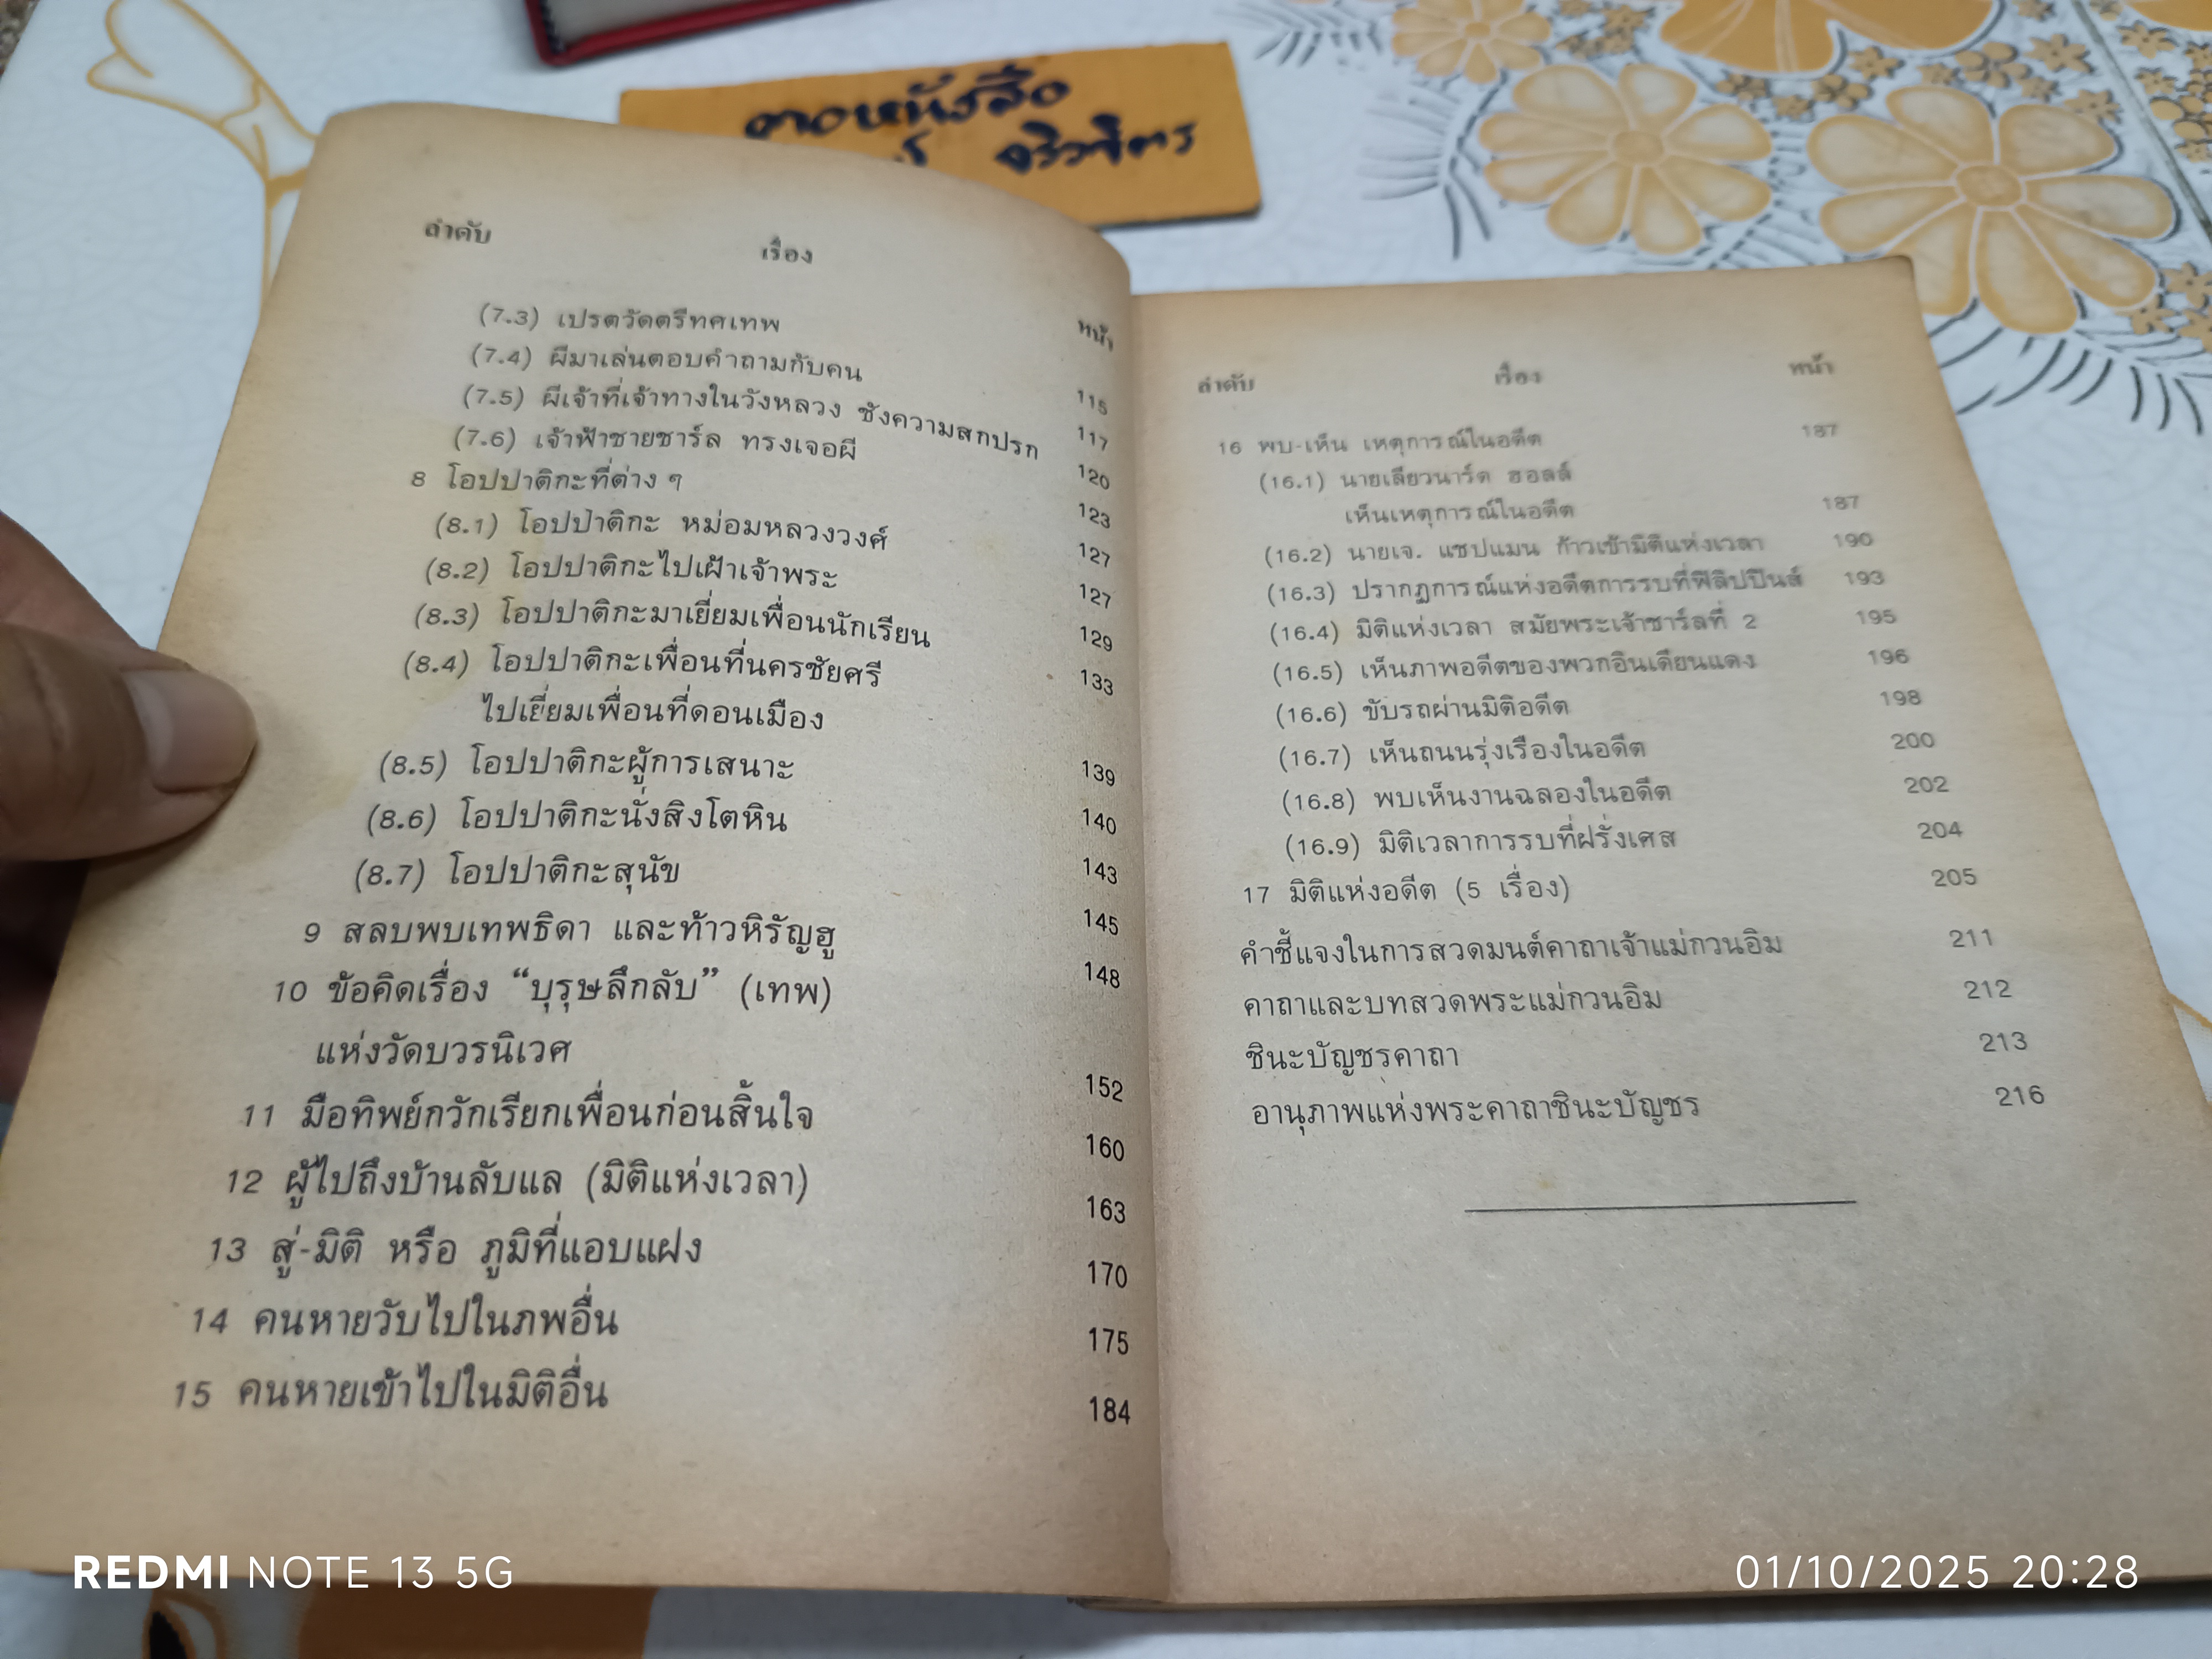 ตอหนังสือ
จริวจิตร
ลำดับ เรื่อง หน้า
(7.3) เปรตวัดตรีทศเทพ 115
(7.4) ผีมาเล่นตอบคำถามกับคน 117
(7.5) ผีเจ้าที่เจ้าทางในวังหลวง ชังความสกปรก 120
(7.6) เจ้าฟ้าชายชาร์ล ทรงเจอผี 123
8 โอปปาติกะที่ต่าง ๆ 127
(8.1) โอปปาติกะ หม่อมหลวงวงศ์ 127
(8.2) โอปปาติกะไปเฝ้าเจ้าพระ 129
(8.3) โอปปาติกะมาเยี่ยมเพื่อนนักเรียน 133
(8.4) โอปปาติกะเพื่อนที่นครชัยศรี
ไปเยี่ยมเพื่อนที่ดอนเมือง 139
(8.5) โอปปาติกะผู้การเสนาะ 140
(8.6) โอปปาติกะนั่งสิงโตหิน 143
(8.7) โอปปาติกะสุนัข 145
9 สลบพบเทพธิดา และท้าวหิรัญฮู 148
10 ข้อคิดเรื่อง “บุรุษลึกลับ” (เทพ)
แห่งวัดบวรนิเวศ 152
11 มือทิพย์กวักเรียกเพื่อนก่อนสิ้นใจ 160
12 ผู้ไปถึงบ้านลับแล (มิติแห่งเวลา) 163
13 สู่-มิติ หรือ ภูมิที่แอบแฝง 170
14 คนหายวับไปในภพอื่น 175
15 คนหายเข้าไปในมิติอื่น 184
ลำดับ เรื่อง หน้า
16 พบ-เห็น เหตุการณ์ในอดีต 187
(16.1) นายเลียวนาร์ด ฮอลล์
เห็นเหตุการณ์ในอดีต 187
(16.2) นายเจ. แชปแมน ก้าวเข้ามิติแห่งเวลา 190
(16.3) ปรากฏการณ์แห่งอดีตการรบที่ฟิลิปปินส์ 193
(16.4) มิติแห่งเวลา สมัยพระเจ้าชาร์ลที่ 2 195
(16.5) เห็นภาพอดีตของพวกอินเดียนแดง 196
(16.6) ขับรถผ่านมิติอดีต 198
(16.7) เห็นถนนรุ่งเรืองในอดีต 200
(16.8) พบเห็นงานฉลองในอดีต 202
(16.9) มิติเวลาการรบที่ฝรั่งเศส 204
17 มิติแห่งอดีต (5 เรื่อง) 205
คำชี้แจงในการสวดมนต์คาถาเจ้าแม่กวนอิม 211
คาถาและบทสวดพระแม่กวนอิม 212
ชินะบัญชรคาถา 213
อานุภาพแห่งพระคาถาชินะบัญชร 216
REDMI NOTE 13 5G
01/10/2025 20:28